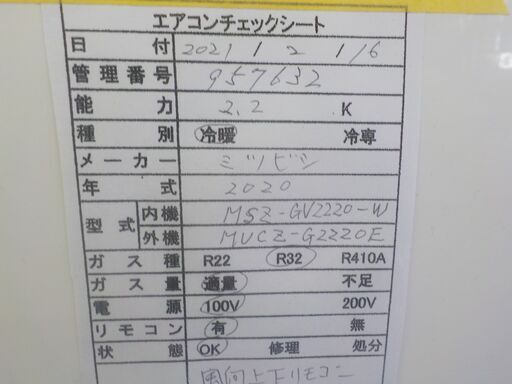 エアコンチェックシート
日付 2021 1 2 1/6
管理番号 957632
能力 2.2 K
種別 冷暖 冷専
メーカー ミツビシ
年式 2020
型式 内機 MSZ-GV2220-W
外機 MUCZ-G2220E
ガス種 R22 R32 R410A
ガス量 適量 不足
電源 100V 200V
リモコン 有 無
状態 OK 修理 処分
風向上下リモコン